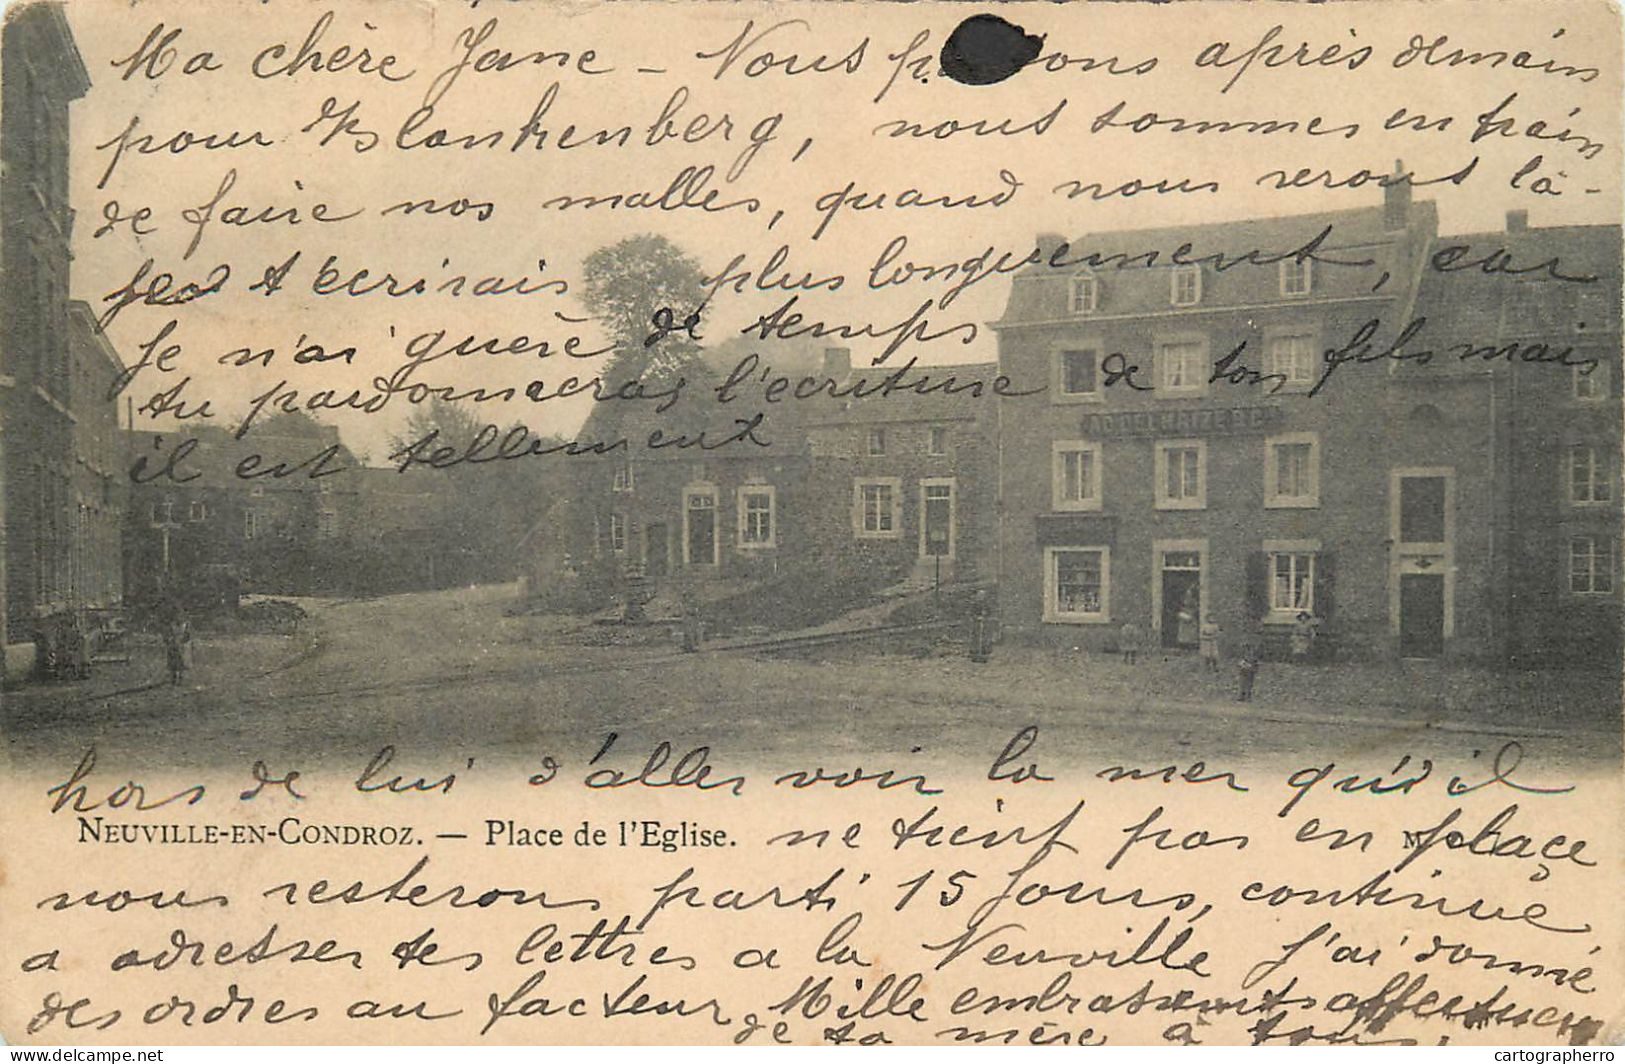 Ma chère Jane - Nous p ons après demain
pour Blankenberg, nous sommes en train
de faire nos malles, quand nous serons là-
t'ecrirais plus longuement, car
je n'ai guère de temps
tu pardonneras l'ecriture de ton fils mais
il est tellement
AD. DELHAIZE & Cie
hors de lui d'aller voir la mer qu'il
NEUVILLE-EN-CONDROZ. — Place de l'Eglise.
ne tient pas en plaçe
nous resterons parti 15 jours, continue
a adresser tes lettres a la Neuville J'ai donné
des ordres au facteur, Mille embrassements affectueux
de ta mère à tous.
delcampe.net
cartographerro